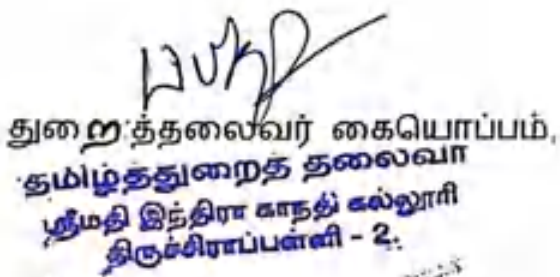 துறைத்தலைவர் கையொப்பம்,
தமிழ்த்துறைத் தலைவர்
ஸ்ரீமதி இந்திரா காந்தி கல்லூரி
திருச்சிராப்பள்ளி - 2.